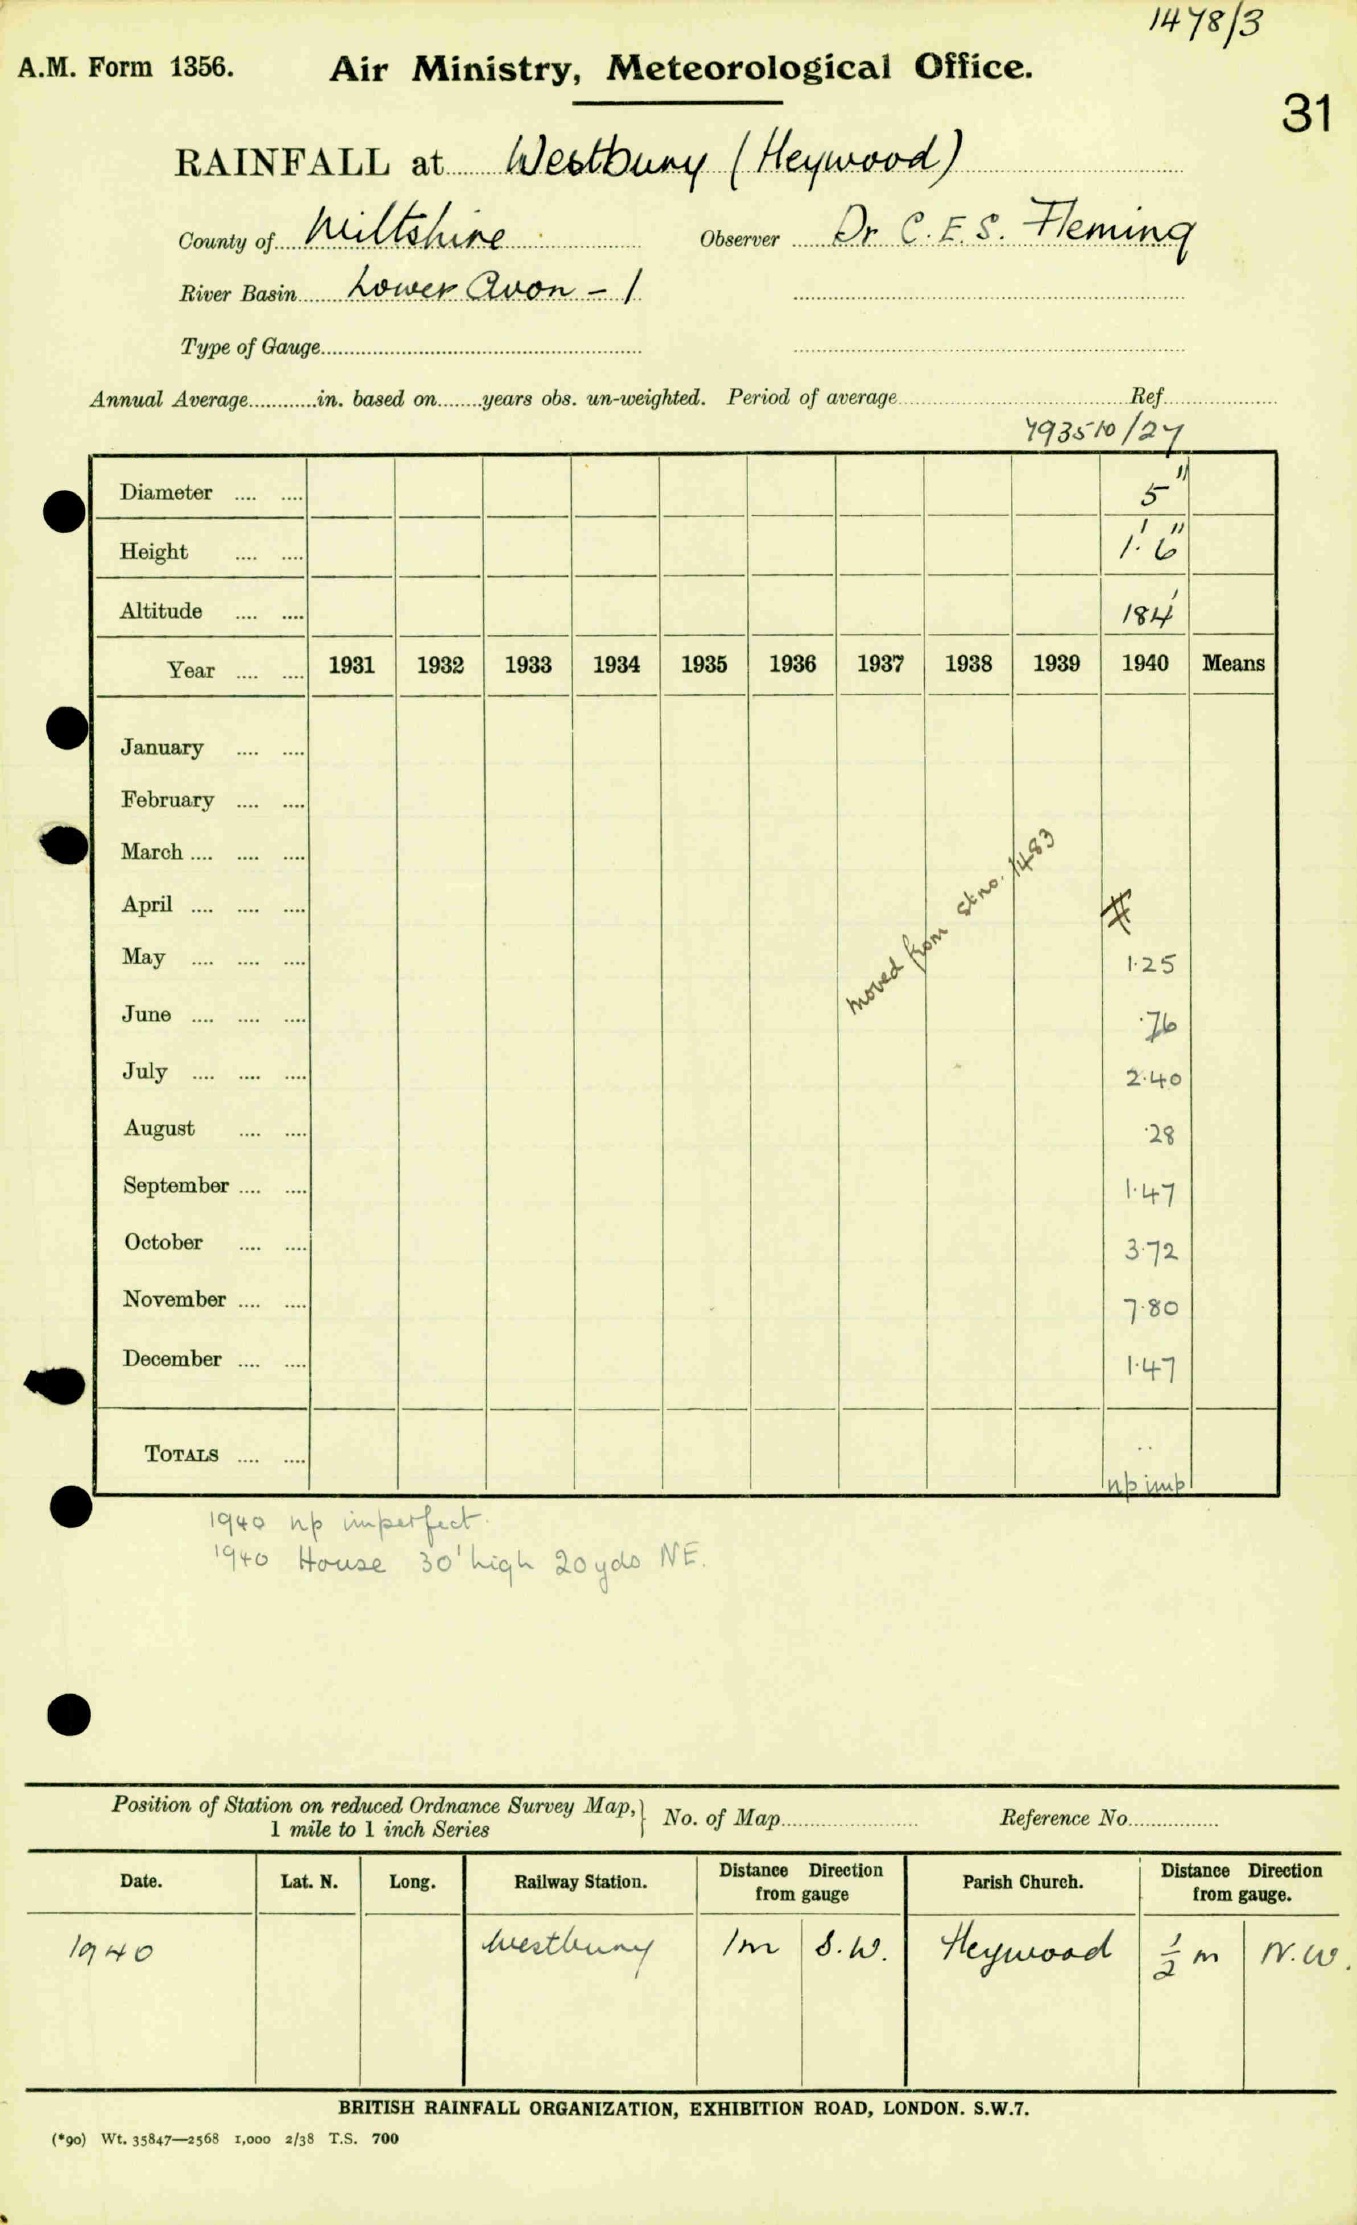 1478/3
A.M. Form 1356. Air Ministry, Meteorological Office.
31
RAINFALL at Westbury (Heywood)
County of Wiltshire Observer Dr C.E.S. Fleming
River Basin Lower Avon - 1
Type of Gauge
Annual Average in. based on years obs. un-weighted. Period of average Ref.
793510/27
Diameter 5"
Height 1'.6"
Altitude 184'
Year 1931 1932 1933 1934 1935 1936 1937 1938 1939 1940 Means
January
February
March
moved from st no. 1483
April #
May 1.25
June .76
July 2.40
August .28
September 1.47
October 3.72
November 7.80
December 1.47
TOTALS ..
np imp
1940 np imperfect.
1940 House 30' high 20 yds NE.
Position of Station on reduced Ordnance Survey Map, } No. of Map Reference No.
1 mile to 1 inch Series
Date. Lat. N. Long. Railway Station. Distance Direction from gauge Parish Church. Distance Direction from gauge.
1940 Westbury 1m S.W. Heywood 1/2 m N.W.
BRITISH RAINFALL ORGANIZATION, EXHIBITION ROAD, LONDON. S.W.7.
(*90) Wt. 35847—2568 1,000 2/38 T.S. 700